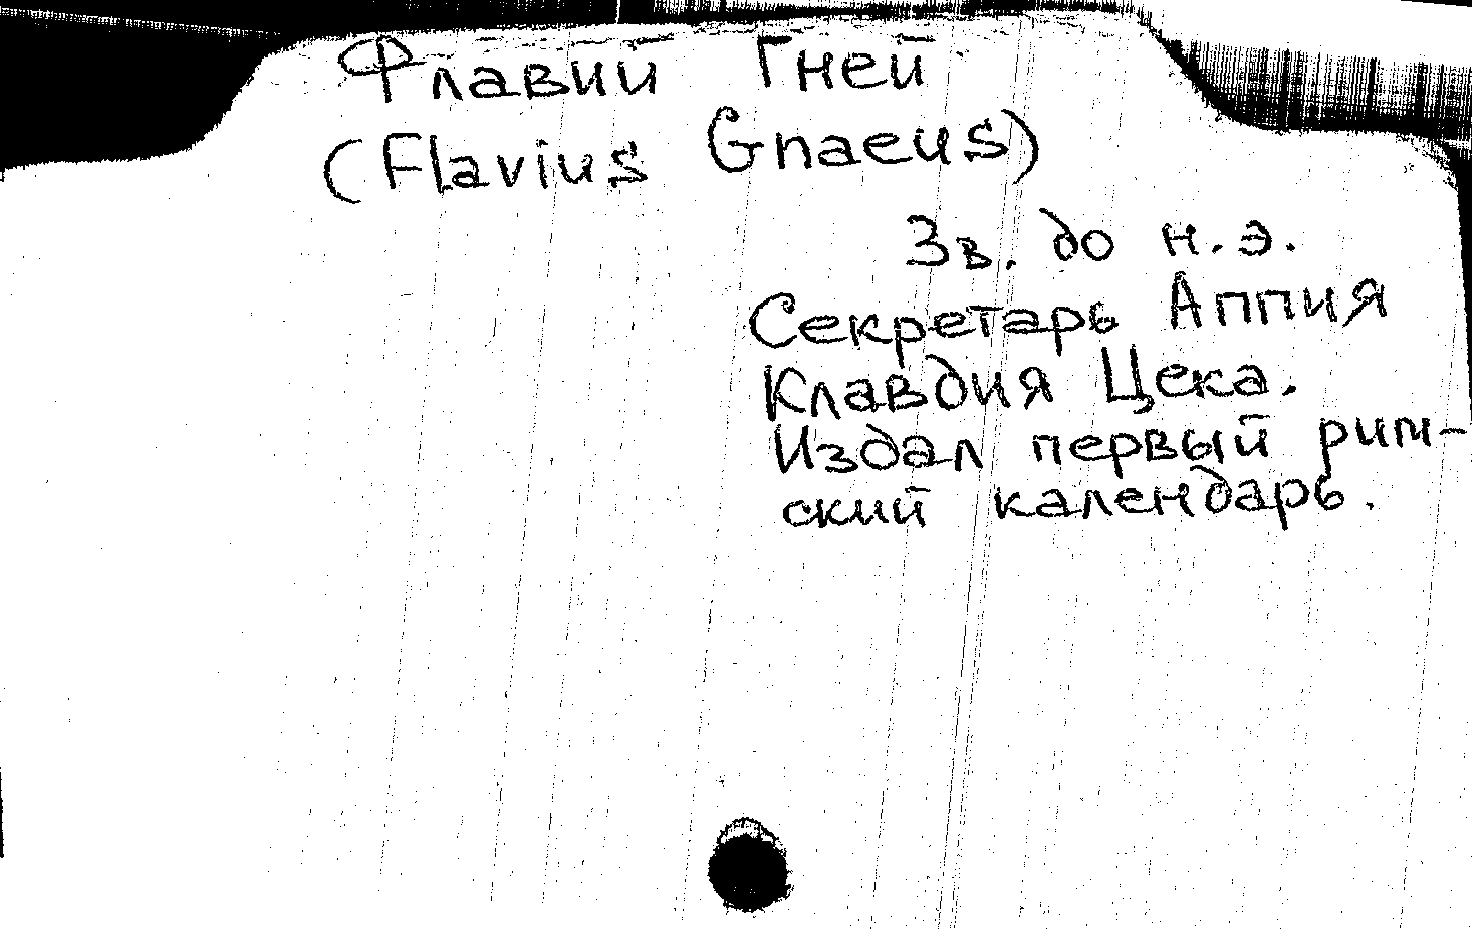 Флавий Гней
(Flavius Gnaeus)
3 в. до н.э.
Секретарь Аппия
Клавдия Цека.
Издал первый рим-
ский календарь.